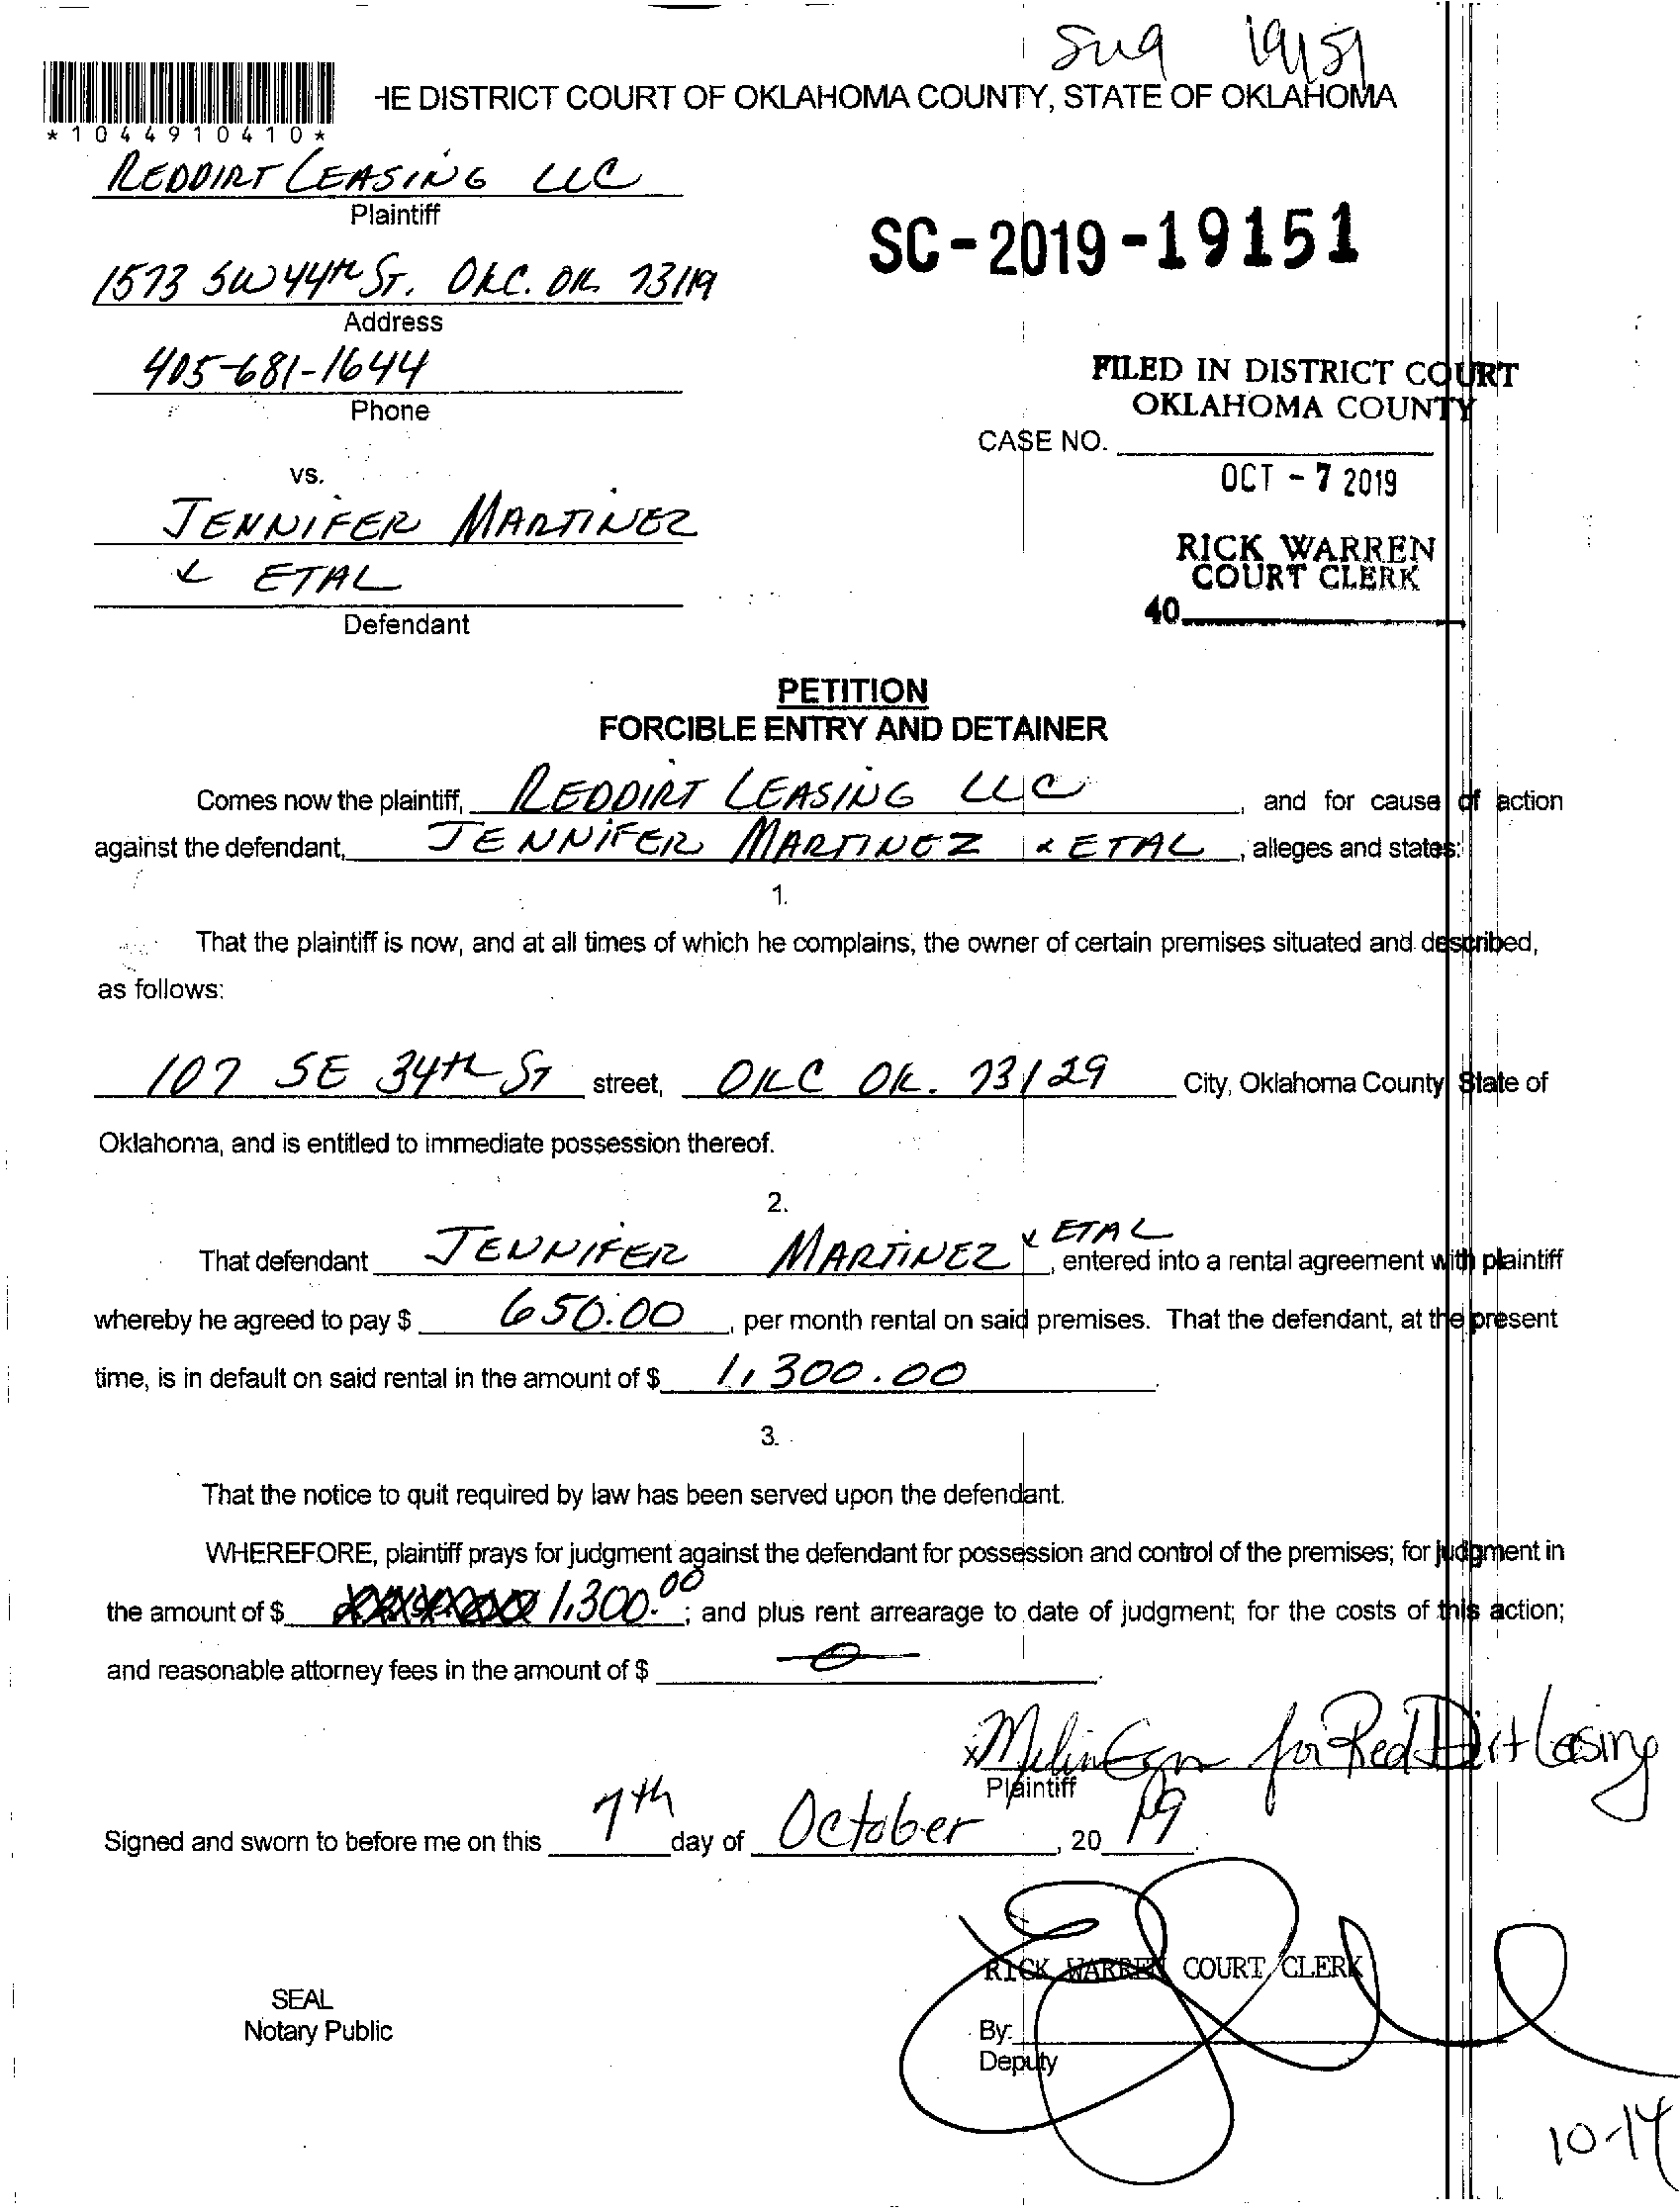 19151
HE DISTRICT COURT OF OKLAHOMA COUNTY, STATE OF OKLAHOMA
*1044910410*
REDDIRT LEASING LLC
Plaintiff
SC-2019-19151
1573 SW 44th ST. OKC. OK 73119
Address
405-681-1644
Phone
FILED IN DISTRICT COURT
OKLAHOMA COUNTY
CASE NO.
OCT - 7 2019
vs.
JENNIFER MARTINEZ
& ETAL
Defendant
RICK WARREN
COURT CLERK
40
PETITION
FORCIBLE ENTRY AND DETAINER
Comes now the plaintiff, REDDIRT LEASING LLC, and for cause of action
against the defendant, JENNIFER MARTINEZ & ETAL, alleges and states:
1.
That the plaintiff is now, and at all times of which he complains, the owner of certain premises situated and described,
as follows:
107 SE 34th ST street, OKC OK. 73129 City, Oklahoma County State of
Oklahoma, and is entitled to immediate possession thereof.
2.
That defendant JENNIFER MARTINEZ & ETAL, entered into a rental agreement with plaintiff
whereby he agreed to pay $ 650.00, per month rental on said premises. That the defendant, at the present
time, is in default on said rental in the amount of $ 1,300.00.
3.
That the notice to quit required by law has been served upon the defendant.
WHEREFORE, plaintiff prays for judgment against the defendant for possession and control of the premises; for judgment in
the amount of $ 1,300.00; and plus rent arrearage to date of judgment; for the costs of this action;
and reasonable attorney fees in the amount of $ 0.
x for Red Dirt Leasing
Plaintiff
Signed and sworn to before me on this 7th day of October, 2019.
RICK WARREN COURT CLERK
SEAL
Notary Public
By:
Deputy
10-14